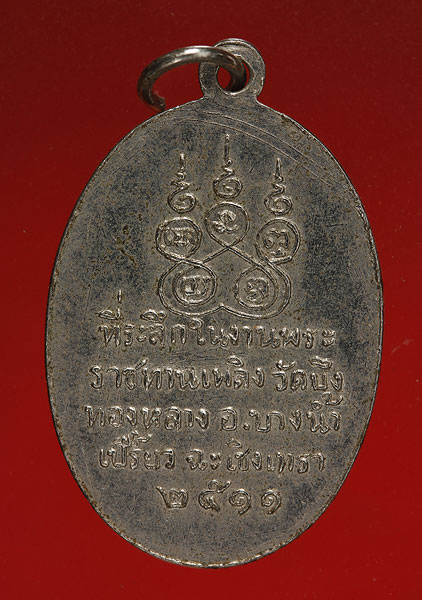 ที่ระลึกในงานพระ
ราชทานเพลิง วัดบึง
ทองหลาง อ.บางน้ำ
เปรี้ยว ฉะเชิงเทรา
๒๕๑๑